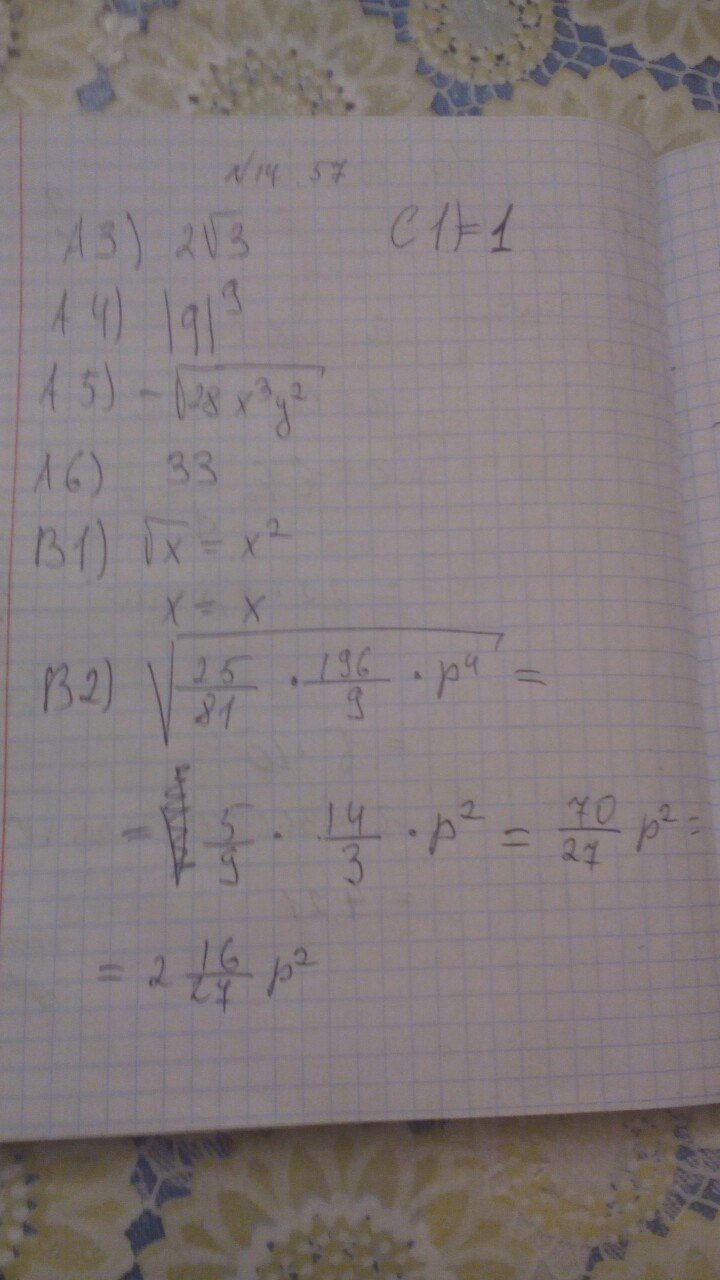 №14 57
А3) 2√3
С1) = 1
А4) |q|⁹
А5) -√28x³y²
А6) 33
В1) √x = x²
x = x
В2) √25/81 · 196/9 · p⁴ =
= 5/9 · 14/3 · p² = 70/27 p² =
= 2 16/27 p²